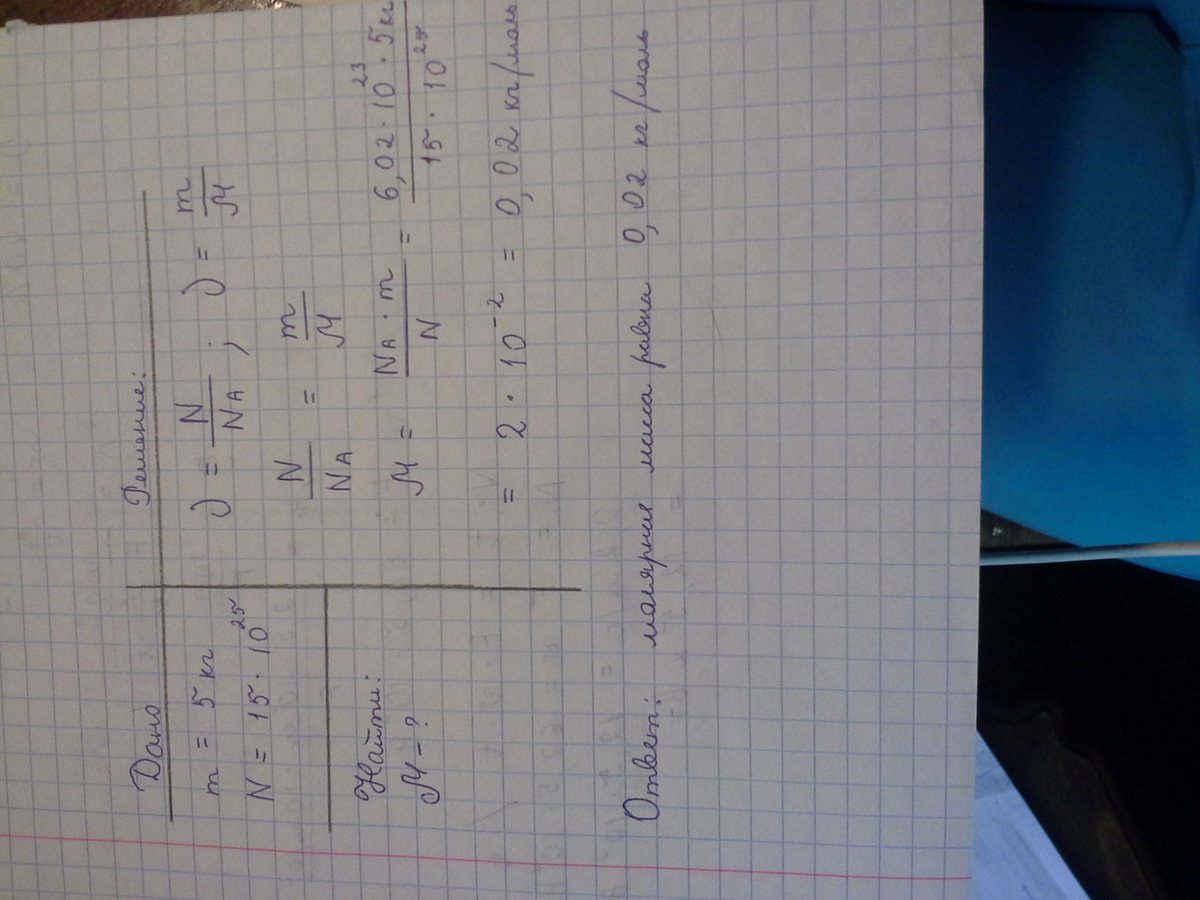 Дано
m = 5 кг
N = 15 · 10²⁵
Найти:
M - ?
Решение:
ν = N/NA ; ν = m/M
N/NA = m/M
M = NA · m/N = 6,02 · 10²³ · 5 кг/15 · 10²⁵
= 2 · 10⁻² = 0,02 кг/моль
Ответ: молярная масса равна 0,02 кг/моль